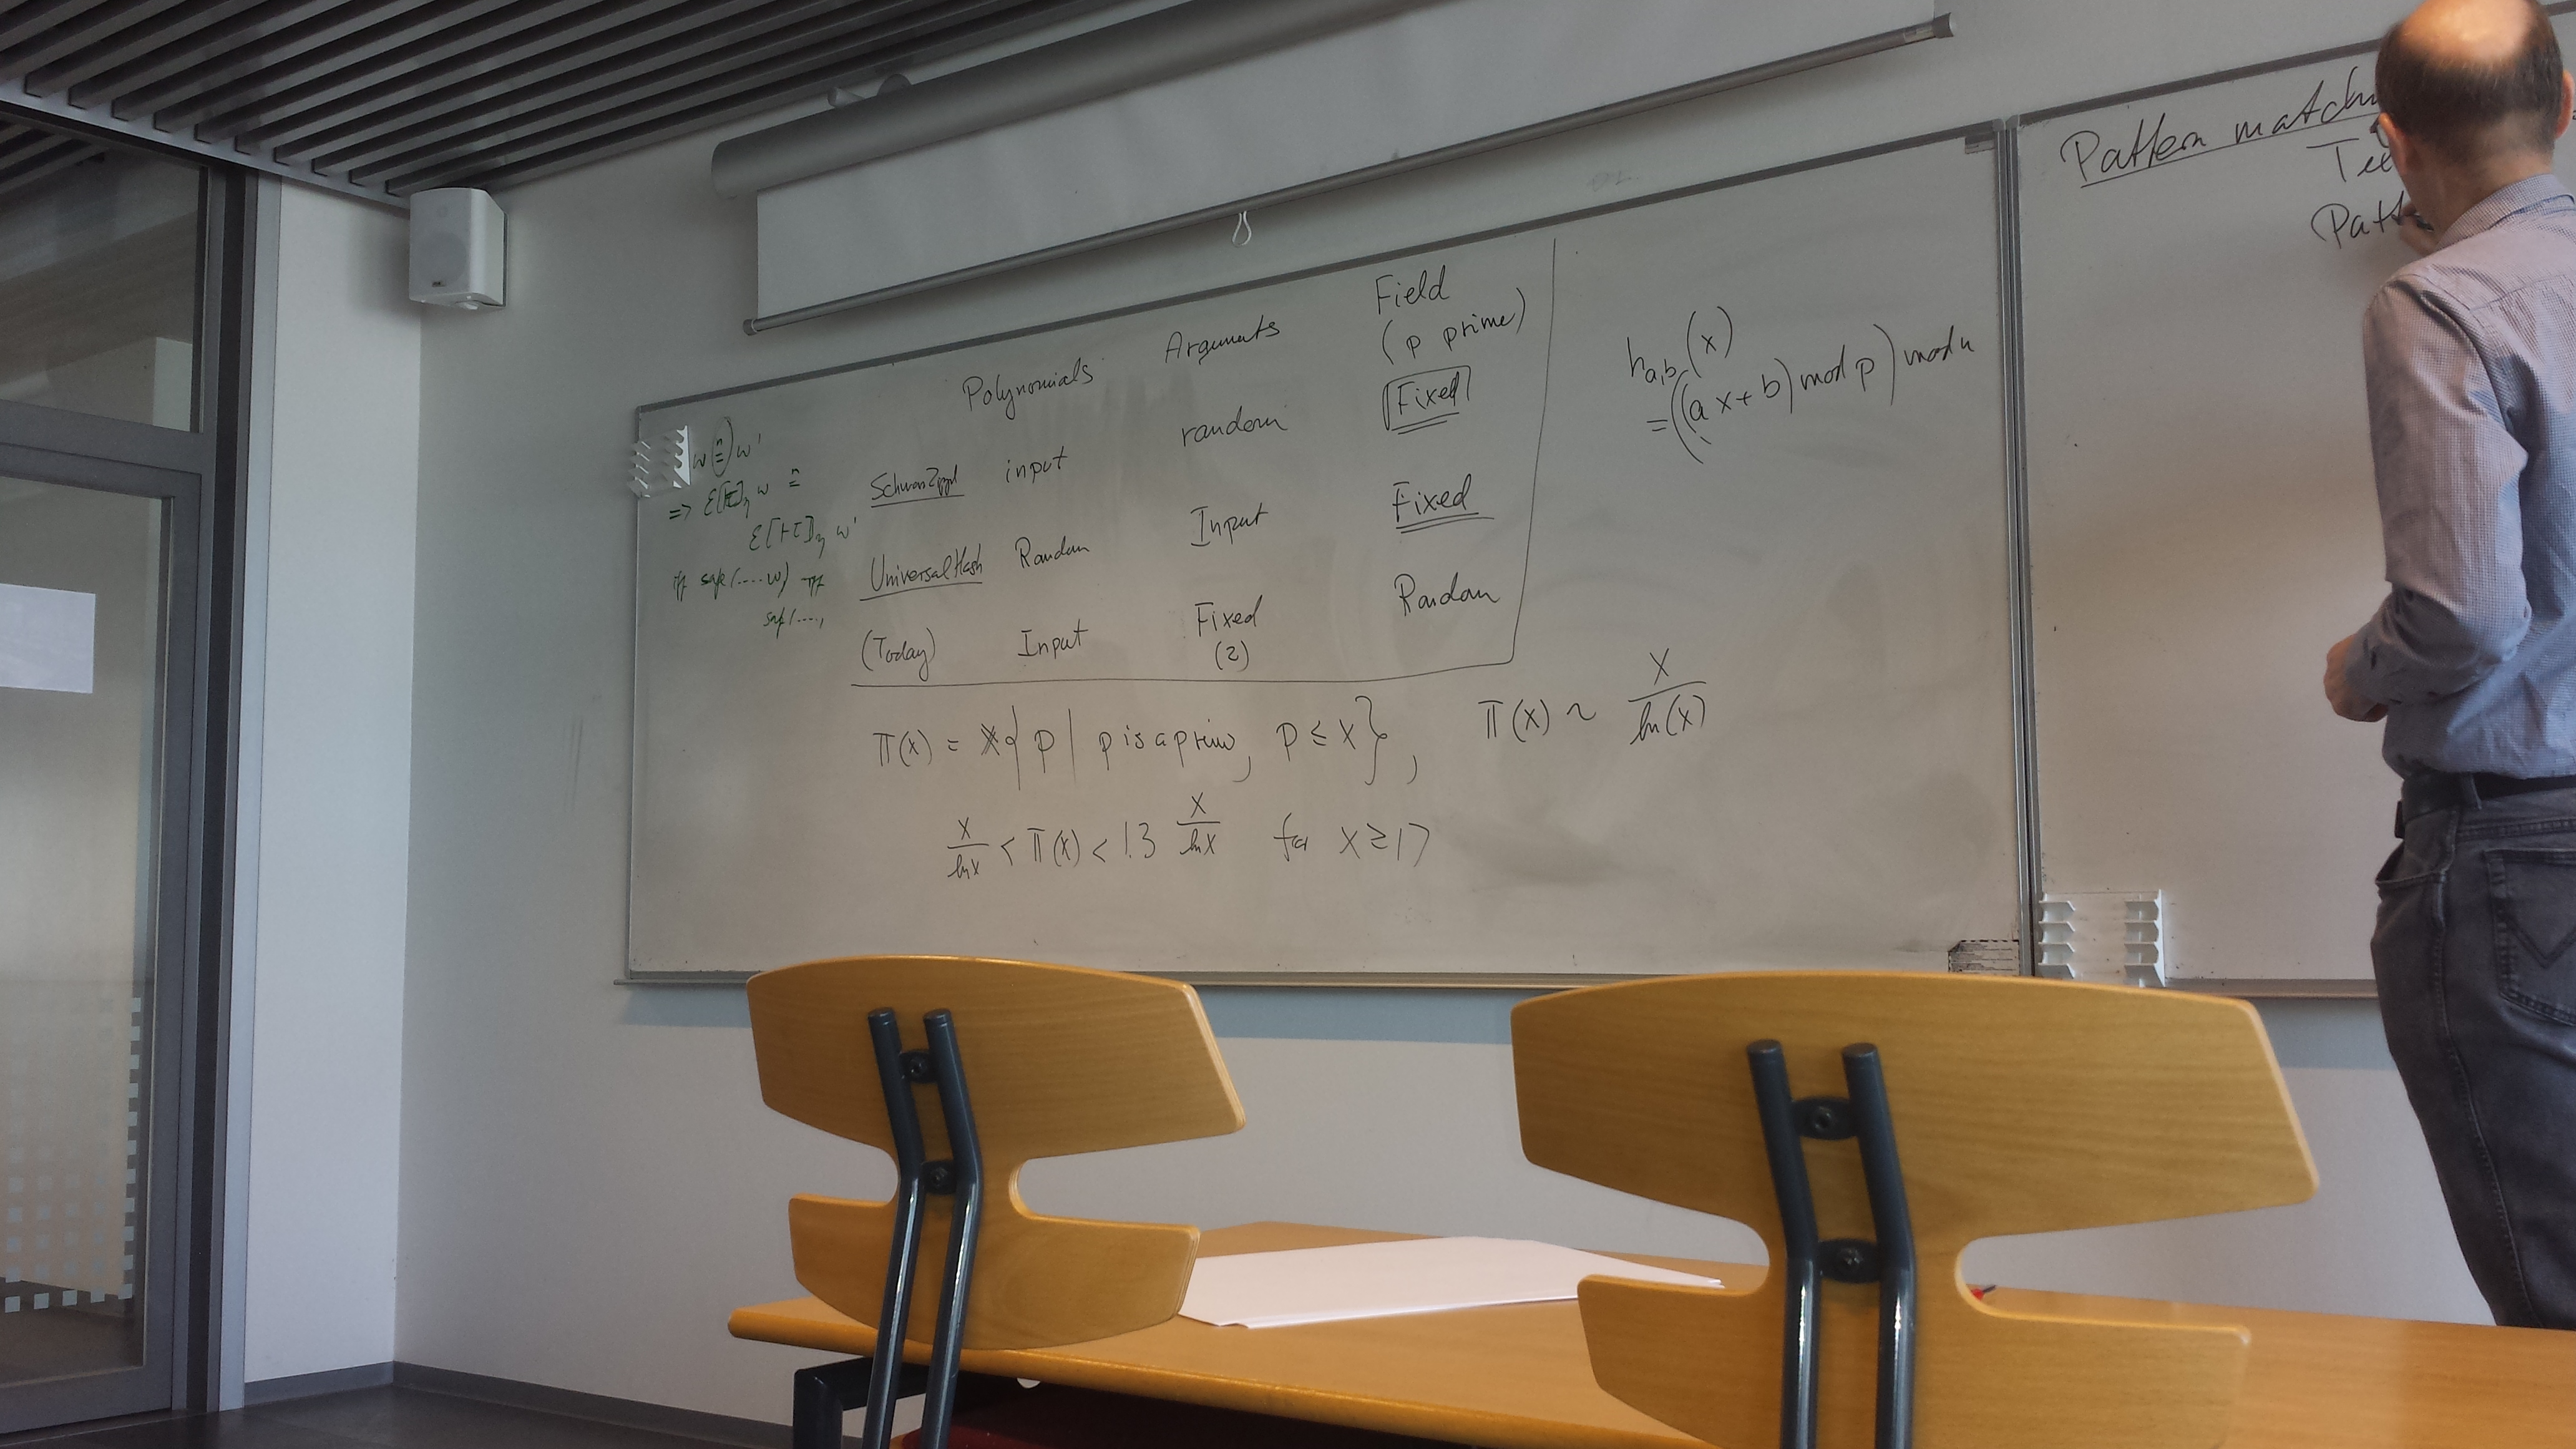 w (n=) w'
=> ε[[τ]]η w n=
ε[[τ]]η w'
iff safe(....w) iff
safe(....,
Polynomials Arguments Field
(p prime)
SchwarzZippel input random Fixed
UniversalHash Random Input Fixed
(Today) Input Fixed Random
(2)
h a,b (x)
= ((ax+b) mod p) mod n
π(x) = #{p | p is a prime, p ≤ x}, π(x) ~ x / ln(x)
x / ln x < π(x) < 1.3 x / ln x for x ≥ 17
Pattern